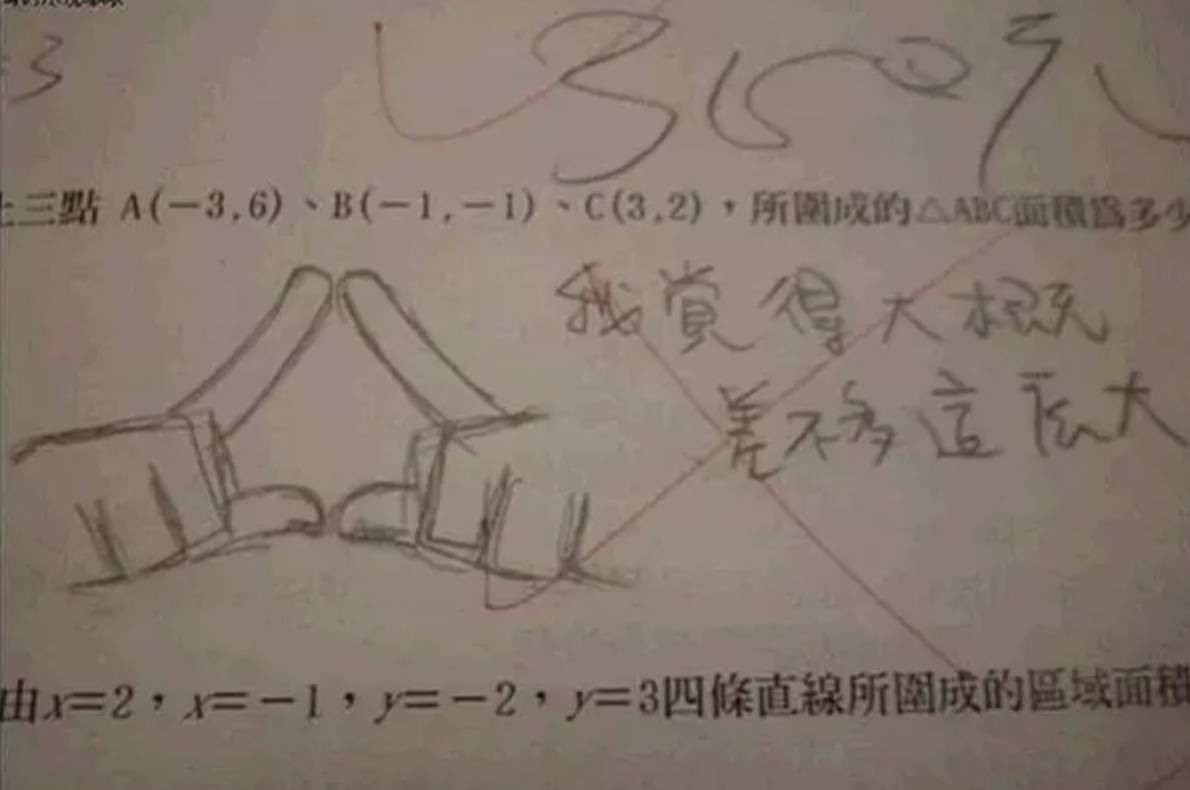 3
上三點 A(－3,6)、B(－1,－1)、C(3,2)，所圍成的△ABC面積為多少
我覺得大概
差不多這麼大
由x=2，x=－1，y=－2，y=3四條直線所圍成的區域面積